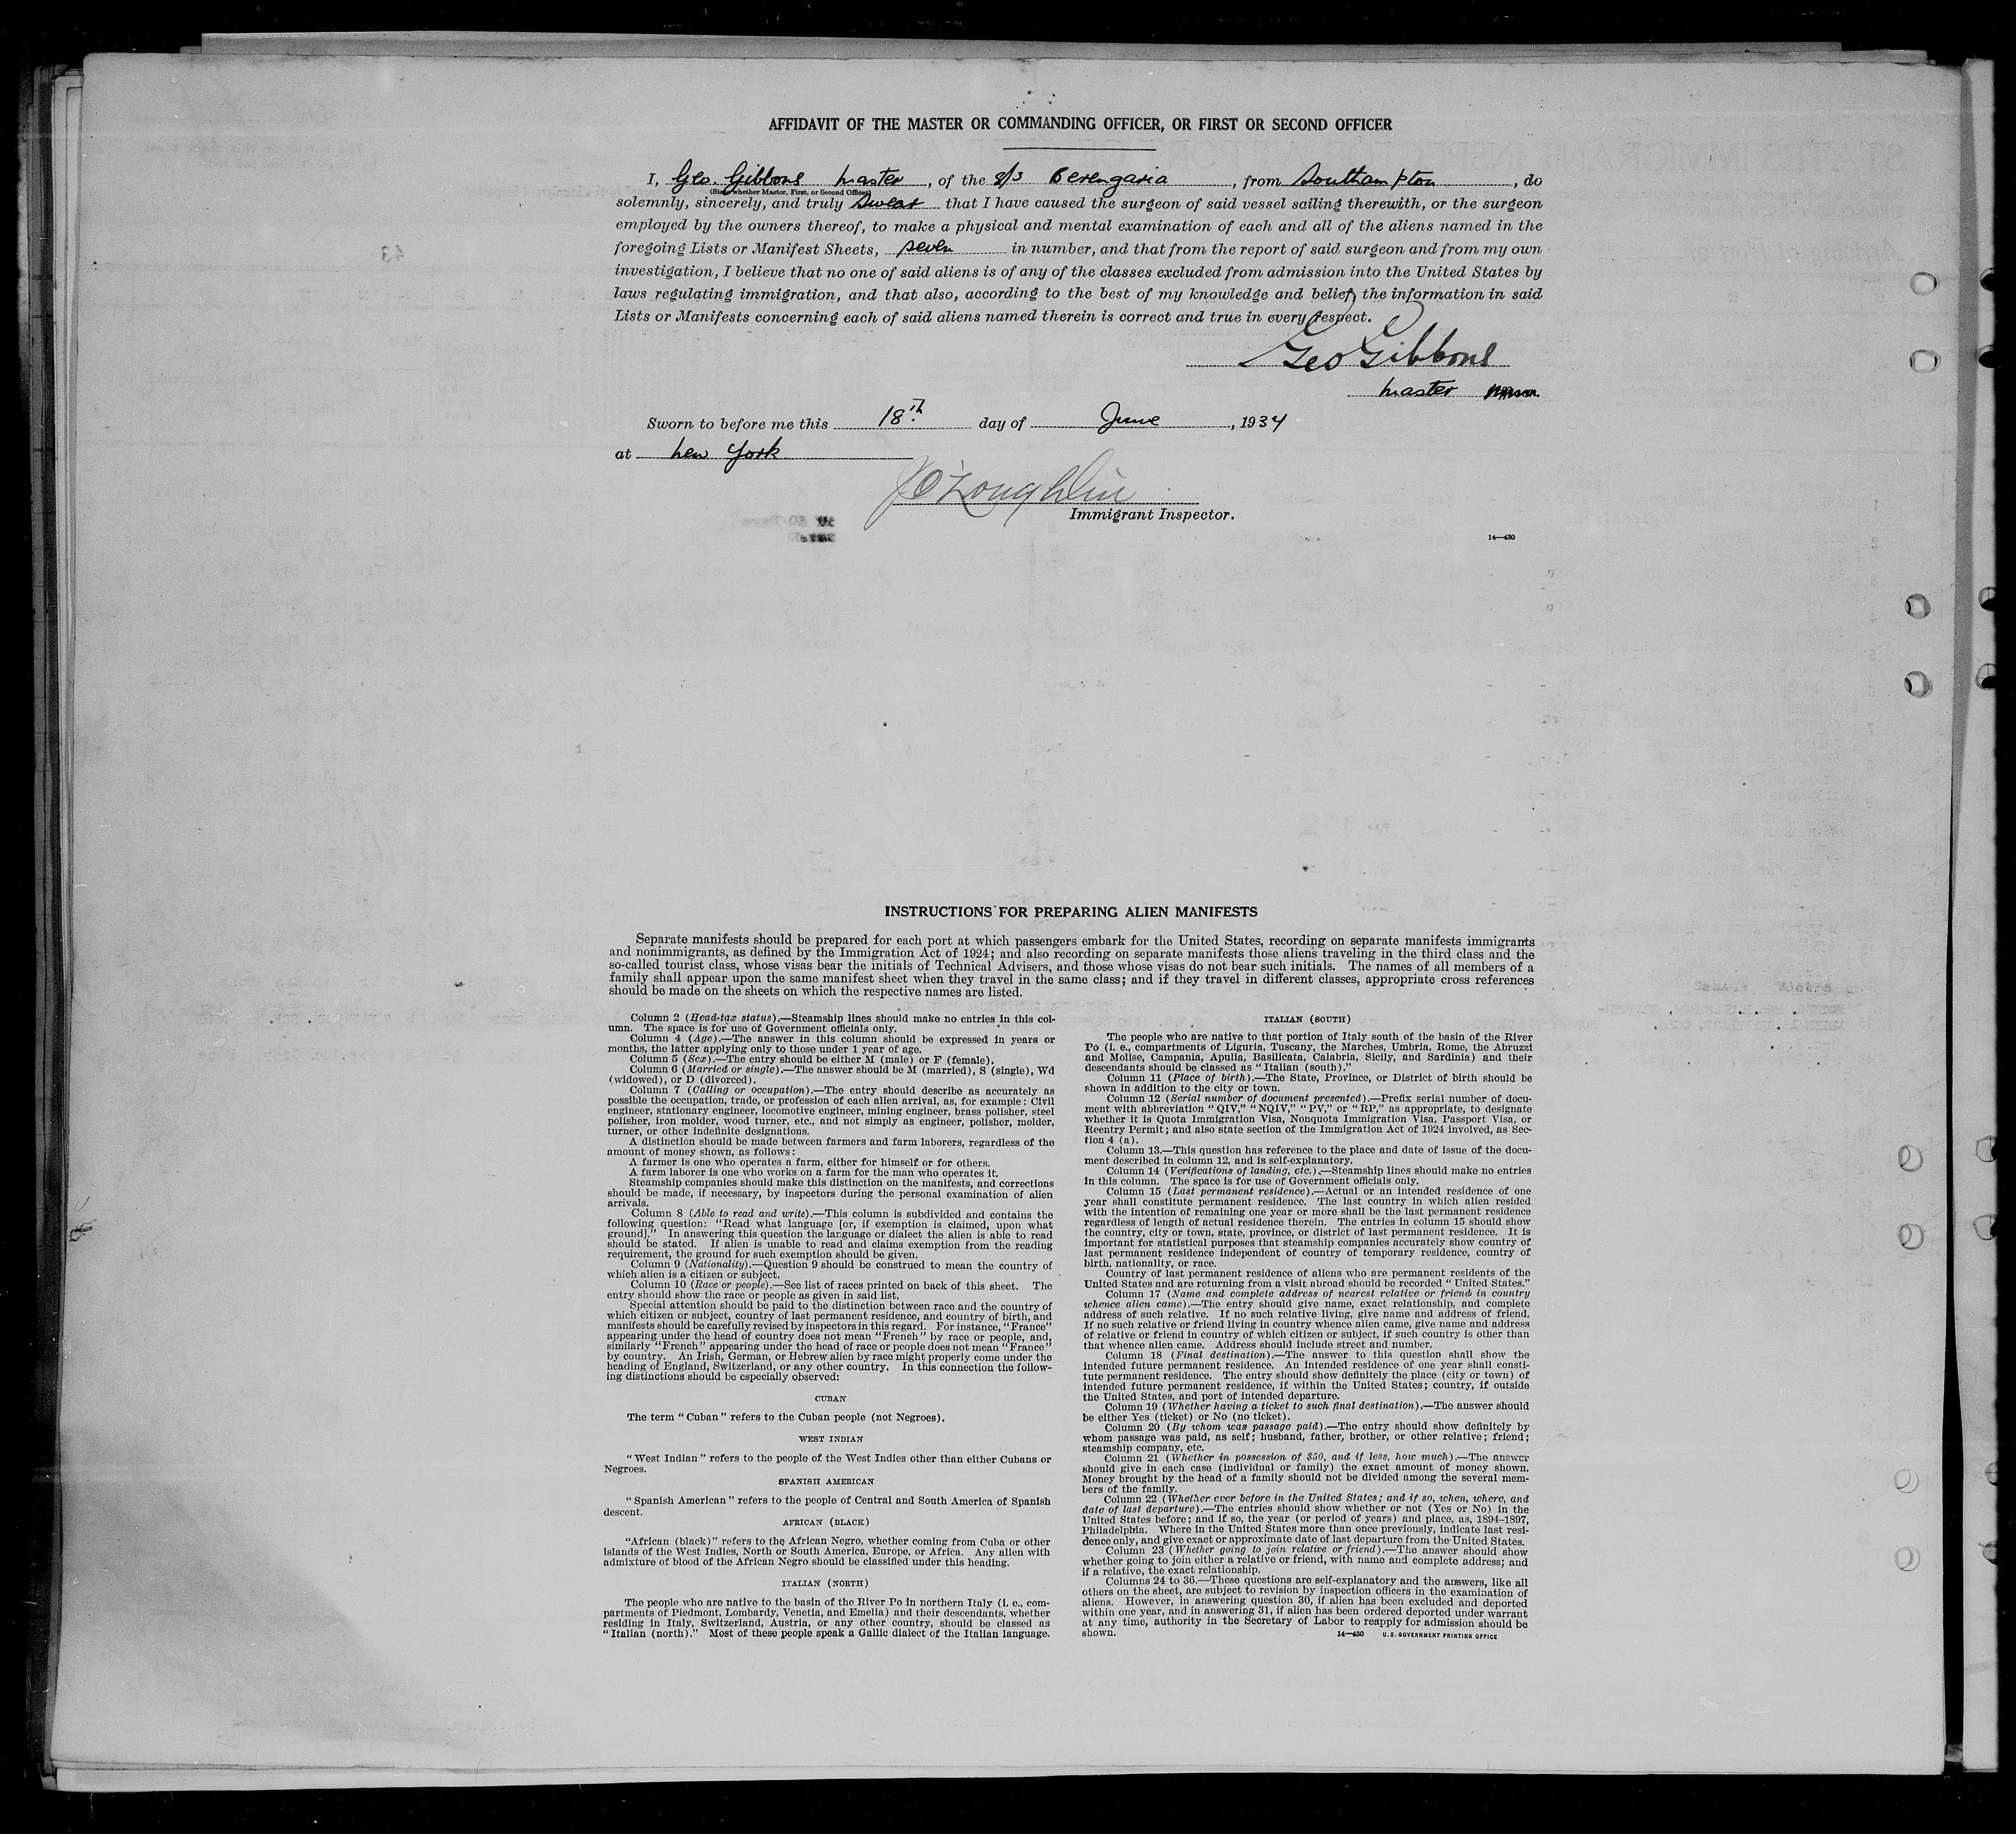 AFFIDAVIT OF THE MASTER OR COMMANDING OFFICER, OR FIRST OR SECOND OFFICER
I, Geo. Gibbons Master, of the S/S Berengaria, from Southampton, do
(State whether Master, First, or Second Officer)
solemnly, sincerely, and truly swear that I have caused the surgeon of said vessel sailing therewith, or the surgeon
employed by the owners thereof, to make a physical and mental examination of each and all of the aliens named in the
foregoing Lists or Manifest Sheets, seven in number, and that from the report of said surgeon and from my own
investigation, I believe that no one of said aliens is of any of the classes excluded from admission into the United States by
laws regulating immigration, and that also, according to the best of my knowledge and belief, the information in said
Lists or Manifests concerning each of said aliens named therein is correct and true in every respect.
Geo Gibbons
Master
Sworn to before me this 18th day of June, 1934
at New York
J O'Loughlin
Immigrant Inspector.
14—430
INSTRUCTIONS FOR PREPARING ALIEN MANIFESTS
Separate manifests should be prepared for each port at which passengers embark for the United States, recording on separate manifests immigrants
and nonimmigrants, as defined by the Immigration Act of 1924; and also recording on separate manifests those aliens traveling in the third class and the
so-called tourist class, whose visas bear the initials of Technical Advisers, and those whose visas do not bear such initials. The names of all members of a
family shall appear upon the same manifest sheet when they travel in the same class; and if they travel in different classes, appropriate cross references
should be made on the sheets on which the respective names are listed.
Column 2 (Head-tax status).—Steamship lines should make no entries in this col-
umn. The space is for use of Government officials only.
Column 4 (Age).—The answer in this column should be expressed in years or
months, the latter applying only to those under 1 year of age.
Column 5 (Sex).—The entry should be either M (male) or F (female).
Column 6 (Married or single).—The answer should be M (married), S (single), Wd
(widowed), or D (divorced).
Column 7 (Calling or occupation).—The entry should describe as accurately as
possible the occupation, trade, or profession of each alien arrival, as, for example: Civil
engineer, stationary engineer, locomotive engineer, mining engineer, brass polisher, steel
polisher, iron molder, wood turner, etc., and not simply as engineer, polisher, molder,
turner, or other indefinite designations.
A distinction should be made between farmers and farm laborers, regardless of the
amount of money shown, as follows:
A farmer is one who operates a farm, either for himself or for others.
A farm laborer is one who works on a farm for the man who operates it.
Steamship companies should make this distinction on the manifests, and corrections
should be made, if necessary, by inspectors during the personal examination of alien
arrivals.
Column 8 (Able to read and write).—This column is subdivided and contains the
following question: "Read what language [or, if exemption is claimed, upon what
ground]." In answering this question the language or dialect the alien is able to read
should be stated. If alien is unable to read and claims exemption from the reading
requirement, the ground for such exemption should be given.
Column 9 (Nationality).—Question 9 should be construed to mean the country of
which alien is a citizen or subject.
Column 10 (Race or people).—See list of races printed on back of this sheet. The
entry should show the race or people as given in said list.
Special attention should be paid to the distinction between race and the country of
which citizen or subject, country of last permanent residence, and country of birth, and
manifests should be carefully revised by inspectors in this regard. For instance, "France"
appearing under the head of country does not mean "French" by race or people, and,
similarly "French" appearing under the head of race or people does not mean "France"
by country. An Irish, German, or Hebrew alien by race might properly come under the
heading of England, Switzerland, or any other country. In this connection the follow-
ing distinctions should be especially observed:
CUBAN
The term "Cuban" refers to the Cuban people (not Negroes).
WEST INDIAN
"West Indian" refers to the people of the West Indies other than either Cubans or
Negroes.
SPANISH AMERICAN
"Spanish American" refers to the people of Central and South America of Spanish
descent.
AFRICAN (BLACK)
"African (black)" refers to the African Negro, whether coming from Cuba or other
islands of the West Indies, North or South America, Europe, or Africa. Any alien with
admixture of blood of the African Negro should be classified under this heading.
ITALIAN (NORTH)
The people who are native to the basin of the River Po in northern Italy (i. e., com-
partments of Piedmont, Lombardy, Venetia, and Emelia) and their descendants, whether
residing in Italy, Switzerland, Austria, or any other country, should be classed as
"Italian (north)." Most of these people speak a Gallic dialect of the Italian language.
ITALIAN (SOUTH)
The people who are native to that portion of Italy south of the basin of the River
Po (i. e., compartments of Liguria, Tuscany, the Marches, Umbria, Rome, the Abruzzi
and Molise, Campania, Apulia, Basilicata, Calabria, Sicily, and Sardinia) and their
descendants should be classed as "Italian (south)."
Column 11 (Place of birth).—The State, Province, or District of birth should be
shown in addition to the city or town.
Column 12 (Serial number of document presented).—Prefix serial number of docu-
ment with abbreviation "QIV," "NQIV," "PV," or "RP," as appropriate, to designate
whether it is Quota Immigration Visa, Nonquota Immigration Visa, Passport Visa, or
Reentry Permit; and also state section of the Immigration Act of 1924 involved, as Sec-
tion 4 (a).
Column 13.—This question has reference to the place and date of issue of the docu-
ment described in column 12, and is self-explanatory.
Column 14 (Verifications of landing, etc.).—Steamship lines should make no entries
in this column. The space is for use of Government officials only.
Column 15 (Last permanent residence).—Actual or an intended residence of one
year shall constitute permanent residence. The last country in which alien resided
with the intention of remaining one year or more shall be the last permanent residence
regardless of length of actual residence therein. The entries in column 15 should show
the country, city or town, state, province, or district of last permanent residence. It is
important for statistical purposes that steamship companies accurately show country of
last permanent residence independent of country of temporary residence, country of
birth, nationality, or race.
Country of last permanent residence of aliens who are permanent residents of the
United States and are returning from a visit abroad should be recorded "United States."
Column 17 (Name and complete address of nearest relative or friend in country
whence alien came).—The entry should give name, exact relationship, and complete
address of such relative. If no such relative living, give name and address of friend.
If no such relative or friend living in country whence alien came, give name and address
of relative or friend in country of which citizen or subject, if such country is other than
that whence alien came. Address should include street and number.
Column 18 (Final destination).—The answer to this question shall show the
intended future permanent residence. An intended residence of one year shall consti-
tute permanent residence. The entry should show definitely the place (city or town) of
intended future permanent residence, if within the United States; country, if outside
the United States, and port of intended departure.
Column 19 (Whether having a ticket to such final destination).—The answer should
be either Yes (ticket) or No (no ticket).
Column 20 (By whom was passage paid).—The entry should show definitely by
whom passage was paid, as self; husband, father, brother, or other relative; friend;
steamship company, etc.
Column 21 (Whether in possession of $50, and if less, how much).—The answer
should give in each case (individual or family) the exact amount of money shown.
Money brought by the head of a family should not be divided among the several mem-
bers of the family.
Column 22 (Whether ever before in the United States; and if so, when, where, and
date of last departure).—The entries should show whether or not (Yes or No) in the
United States before; and if so, the year (or period of years) and place, as, 1894–1897,
Philadelphia. Where in the United States more than once previously, indicate last resi-
dence only, and give exact or approximate date of last departure from the United States.
Column 23 (Whether going to join relative or friend).—The answer should show
whether going to join either a relative or friend, with name and complete address; and
if a relative, the exact relationship.
Columns 24 to 36.—These questions are self-explanatory and the answers, like all
others on the sheet, are subject to revision by inspection officers in the examination of
aliens. However, in answering question 30, if alien has been excluded and deported
within one year, and in answering 31, if alien has been ordered deported under warrant
at any time, authority in the Secretary of Labor to reapply for admission should be
shown.
14—430 U. S. GOVERNMENT PRINTING OFFICE